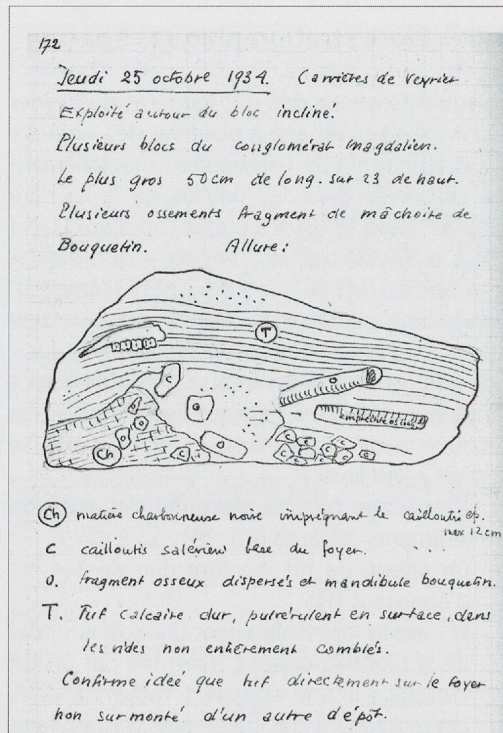 172
Jeudi 25 octobre 1934. Carrières de Veyrier
Exploité autour du bloc incliné!
Plusieurs blocs du conglomérat magdalien.
Le plus gros 50cm de long. sur 23 de haut.
Plusieurs ossements fragment de mâchoire de
Bouquetin. Allure:
T
c
o
o
empreinte os
Ch
o
o
o
c
c
o
c
c
c
c
c
c
c
c
Ch matière charbonneuse noire imprégnant le cailloutis ép.
max 12cm
C cailloutis salévien base du foyer. . . .
O. fragment osseux dispersés et mandibule bouquetin.
T. Tuf calcaire dur, pulvérulent en surface, dans
les vides non entièrement comblés.
Confirme ideé que tuf directement sur le foyer
non surmonté d'un autre dépôt.